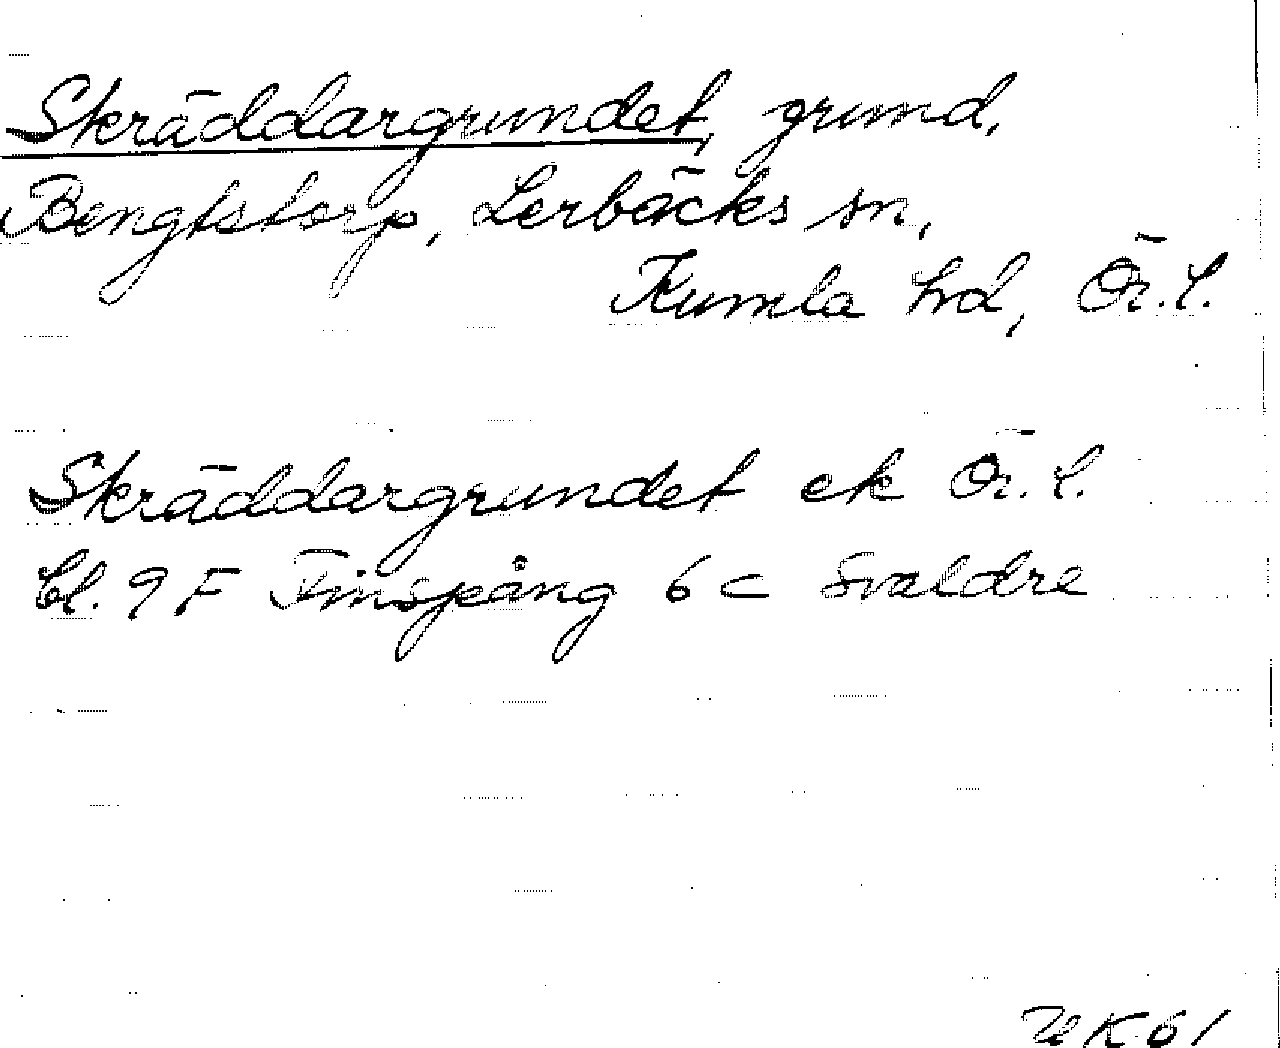 Skräddargrundet, grund,
Bengtstorp, Lerbäcks sn,
Kumla hd, Ör. l.
Skräddargrundet ek Ör. l.
bl. 9 F Finspång 6 c Svaldre
UK 61